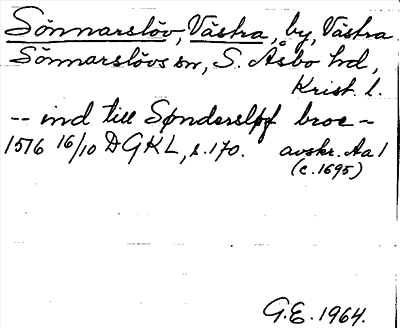 Sönnarslöv, Västra, by, Västra
Sönnarslövs sn, S. Åsbo hd,
Krist. l.
-- ind till Søndersløf broe -
1516 16/10 DGKL, s. 170. avskr. Aa 1
(c. 1695)
G.E. 1964.